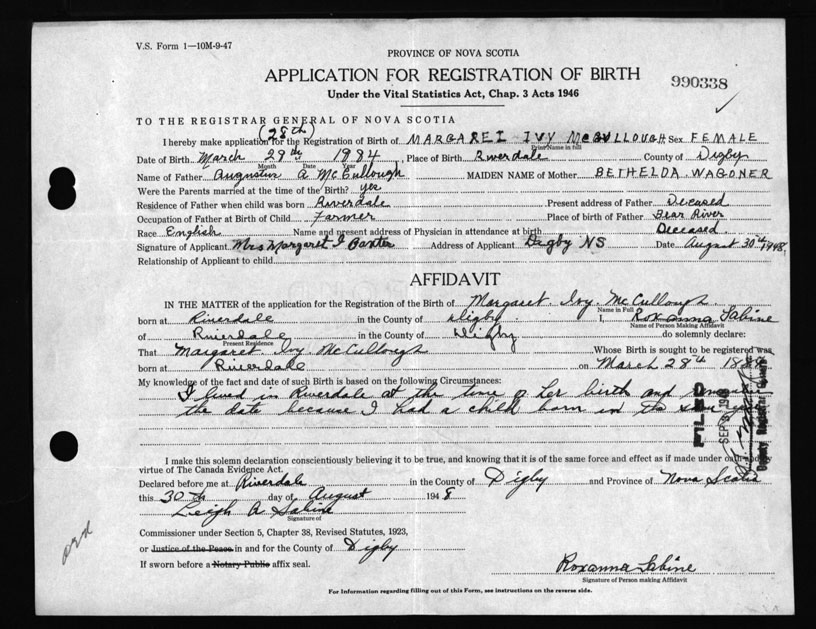 V.S. Form 1—10M-9-47
PROVINCE OF NOVA SCOTIA
APPLICATION FOR REGISTRATION OF BIRTH
990338
Under the Vital Statistics Act, Chap. 3 Acts 1946
TO THE REGISTRAR GENERAL OF NOVA SCOTIA
(28th)
I hereby make application for the Registration of Birth of MARGARET IVY McCULLOUGH Sex FEMALE
Print Name in full
Date of Birth March 29th, Place of Birth Riverdale County of Digby
Month Date Year
Name of Father Augustus A McCullough MAIDEN NAME of Mother BETHELDA WAGONER
Were the Parents married at the time of the Birth? yes
Residence of Father when child was born Riverdale Present address of Father Deceased
Occupation of Father at Birth of Child Farmer Place of birth of Father Bear River
Race English Name and present address of Physician in attendance at birth Deceased
Signature of Applicant Mrs Margaret I Baxter Address of Applicant Digby NS Date August 30th 1948
Relationship of Applicant to child
AFFIDAVIT
IN THE MATTER of the application for the Registration of the Birth of Margaret Ivy McCullough
Name in Full
born at Riverdale in the County of Digby I, Roxanna Sabine
Name of Person Making Affidavit
of Riverdale in the County of Digby do solemnly declare:
Present Residence
That Margaret Ivy McCullough Whose Birth is sought to be registered was
born at Riverdale on March 28th
My knowledge of the fact and date of such Birth is based on the following Circumstances:
I lived in Riverdale at the time of her birth and
the date because I had a child born in the same
FILED
SEP 3 1948
Deputy Registrar General
I make this solemn declaration conscientiously believing it to be true, and knowing that it is of the same force and effect as if made under oath and by
virtue of The Canada Evidence Act.
Declared before me at Riverdale in the County of Digby and Province of Nova Scotia
this 30th day of August 1948
Leigh A Sabine
Signature of
Commissioner under Section 5, Chapter 38, Revised Statutes, 1923,
or Justice of the Peace in and for the County of Digby
If sworn before a Notary Public affix seal.
Roxanna Sabine
Signature of Person making Affidavit
For Information regarding filling out of this Form, see instructions on the reverse side.
ord